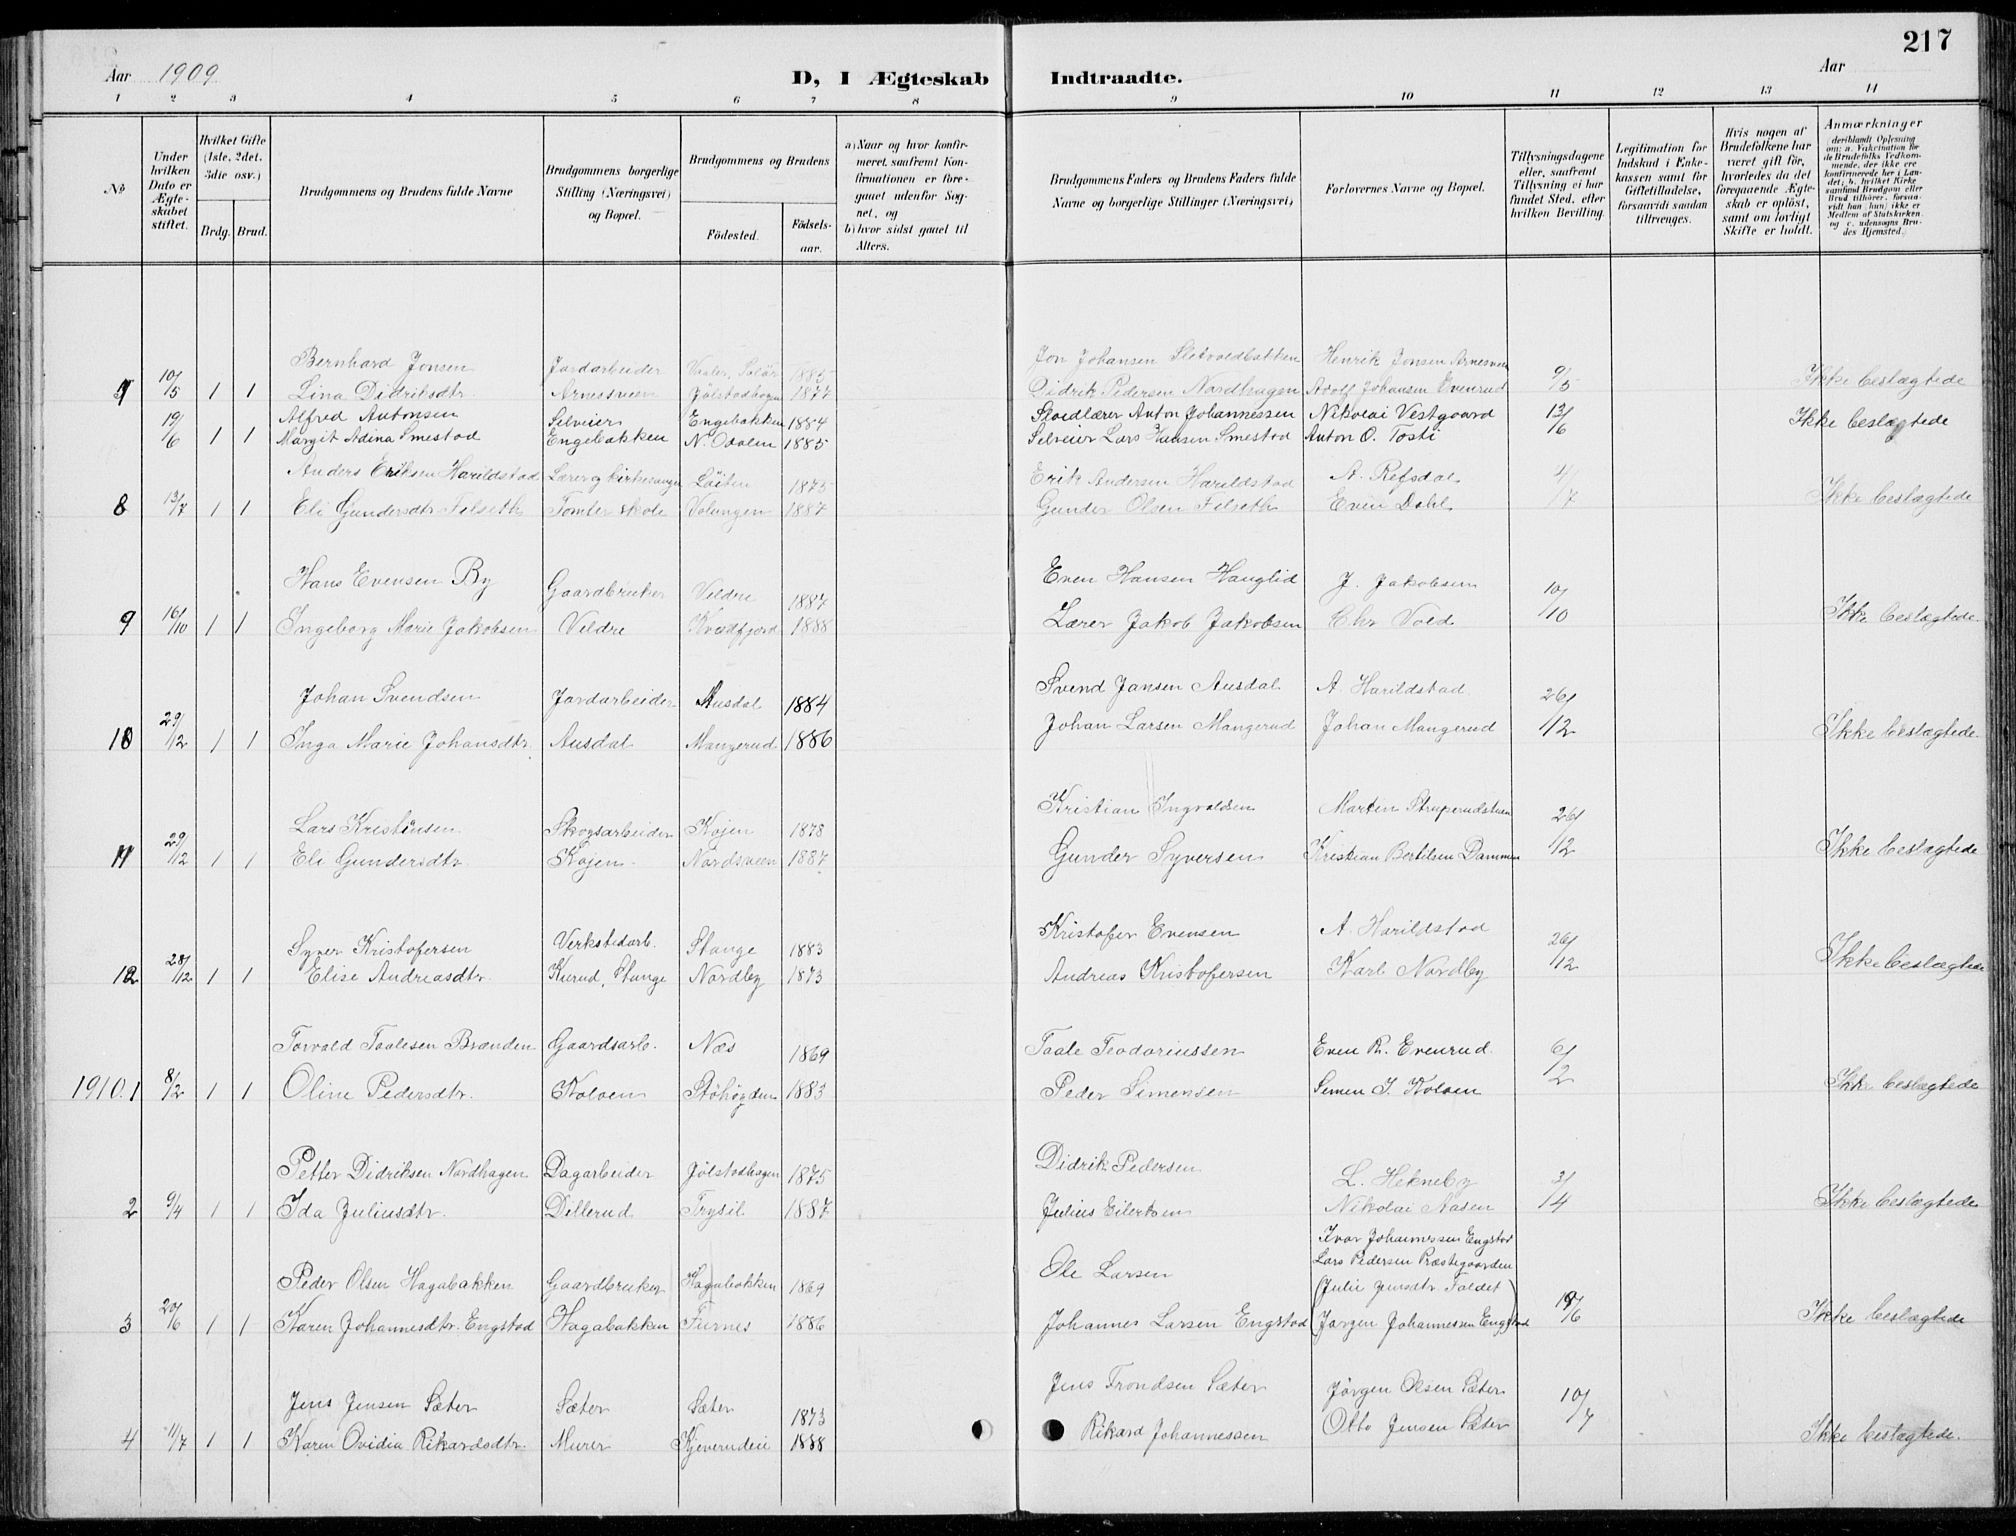 217
Aar 1909
D, I Ægteskab Indtraadte.
Aar
1 2 3 4 5 6 7 8 9 10 11 12 13 14
No
Under hvilken Dato er Ægteskabet stiftet.
Hvilket Gifte (1ste, 2det, 3die osv.)
Brdg. Brud.
Brudgommens og Brudens fulde Navne
Brudgommens borgerlige Stilling (Næringsvei) og Bopæl.
Brudgommens og Brudens
Födested.
Födselsaar.
a) Naar og hvor konfirmeret, saafremt Konfirmationen er foregaaet udenfor Sognet, og
b) hvor sidst gaaet til Alters.
Brudgommens Faders og Brudens Faders fulde Navne og borgerlige Stillinger (Næringsvei)
Forlovernes Navne og Bopæl.
Tillysningsdagene eller, saafremt Tillysning ei har fundet Sted, efter hvilken Bevilling.
Legitimation for Indskud i Enkekassen samt for Giftetilladelse, forsaavidt saadan tiltrænges.
Hvis nogen af Brudefolkene har været gift för, hvorledes da det foregaaende Ægteskab er oplöst, samt om lovligt Skifte er holdt.
Anmærkninger
(deriblandt Oplysning om: a. Vakcination for de Brudefolks Vedkommende, der ikke ere konfirmerede her i Landet; b. hvilket Kirkesamfund Brudgom eller Brud tilhörer, forsaavidt han (hun) ikke er Medlem af Statskirken, og c. udensogns Brudes Hjemsted.)
Bernhard Jonsen Jordarbeider Vaaler, Solör 1885 Jon Johansen Sletvoldbakken Henrik Jonsen Arnesveen
10/5 1 1 Lina Didriksdtr. Arnesveen Jölstadhagen 1877 Didrik Pedersen Nordhagen Adolf Johansen Evenrud 9/5 Ikke beslægtede
19/6 Alfred Antonsen Selveier Engebakken 1884 Sloidlærer Anton Johannessen Nikolai Vestgaard 13/6 Ikke beslægtede
1 1 Margit Adina Smestad Engebakken N. Odalen 1885 Selveier Lars Hansen Smestad Anton O. Tosti
Anders Eriksen Harildstad Lærer og kirkesanger Löiten 1875 Erik Andersen Harildstad A. Refsdal 4/7
8 13/7 1 1 Eli Gundersdtr. Felseth Tomter skole Volungen 1887 Gunder Olsen Felseth Even Dahl Ikke beslægtede
Hans Evensen By Gaardbruker Veldre 1887 Even Hansen Hauglid J. Jakobsen 10/10
9 16/10 1 1 Ingeborg Marie Jakobsen Veldre Kvædfjord 1888 Lærer Jakob Jakobsen Chr Vold Ikke beslægtede.
Johan Svendsen Jordarbeider Ausdal 1884 Svend Jansen Ausdal A. Harildstad 26/12
10 29/12 1 1 Inga Marie Johansdtr. Ausdal Mangerud 1886 Johan Larsen Mangerud Johan Mangerud Ikke beslægtede.
Lars Kristiansen Skogsarbeider Kojen 1878 Kristian Ingvaldsen Martin 26/12
11 29/12 1 1 Eli Gundersdtr Kojen Nordsveen 1887 Gunder Syversen Kristian Bertilsen Dammen Ikke beslægtede
Syver Kristofersen Verkstedarb. Stange 1883 Kristofer Evensen A. Harildstad 26/12
12 28/12 1 1 Elise Andreasdtr. Kurud, Stange Nordby 1873 Andreas Kristofersen Karl Nordby Ikke beslægtede
Torvald Taalesen Brænden Gaardsarb. Næs 1869 Taale Teodoriussen Even R. Evenrud. 6/2
1910. 1 8/2 1 1 Oline Pedersdtr. Koloen Stöhögden 1883 Peder Simensen Simen J. Koloen Ikke beslægtede
Petter Didriksen Nordhagen Dagarbeider Jölstadhagen 1875 Didrik Pedersen L. Hekneby 3/4
2 9/4 1 1 Ida Juliusdtr. Dillerud Trysil 1887 Julius Eilertsen Nikolai Aasen Ikke beslægtede
Ivar Johannessen Engstad
Lars Pedersen Præstegaarden
Peder Olsen Hagabakken Gaardbruker Hagabakken 1869 Ole Larsen (Julie Jensdtr. Foldet)
3 20/6 1 1 Karen Johannesdtr. Engstad Hagabakken Furnes 1886 Johannes Larsen Engstad (Jørgen Johannessen Engstad 19/6 Ikke beslægtede
Jens Jensen Sæter Sæter Sæter 1873 Jens Trondsen Sæter Jörgen Olsen Sæter 10/7
4 11/7 1 1 Karen Ovidia Rikardsdtr. Murer Kjeverudeie 1888 Rikard Johannessen Otto Jensen Sæter Ikke beslægtede.